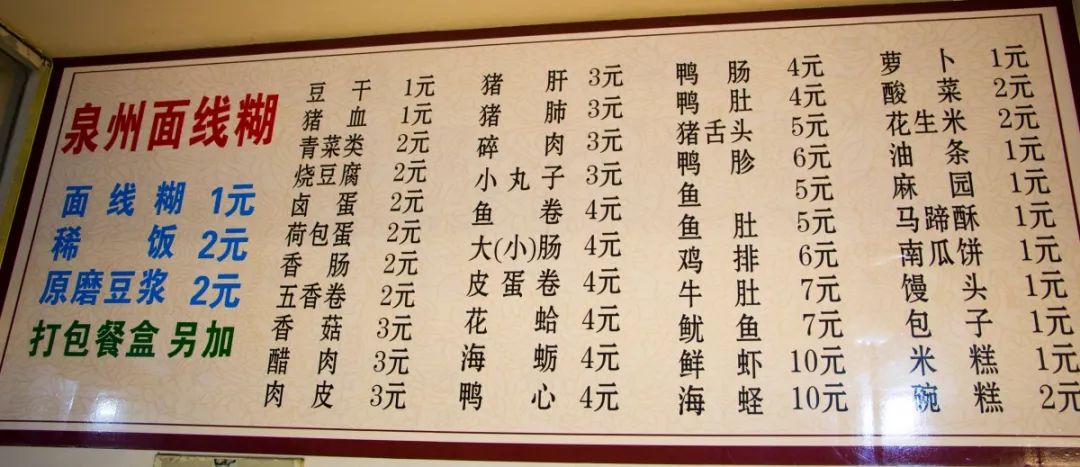 泉州面线糊
面线糊 1元
稀饭 2元
原磨豆浆 2元
打包餐盒 另加
豆干 1元
猪血 1元
青菜类 2元
烧豆腐 2元
卤蛋 2元
荷包蛋 2元
香肠 2元
五香卷 2元
香菇 3元
醋肉 3元
肉皮 3元
猪肝 3元
猪肺 3元
碎肉 3元
小丸子 3元
鱼卷 4元
大(小)肠 4元
皮蛋卷 4元
花蛤 4元
海蛎 4元
鸭心 4元
鸭肠 4元
鸭肚 4元
猪舌头 5元
鸭胗 6元
鱼 5元
鱼肚 5元
鸡排 6元
牛肚 7元
鱿鱼 7元
鲜虾 10元
海蛏 10元
萝卜 1元
酸菜 2元
花生米 2元
油条 1元
麻园 1元
马蹄酥 1元
南瓜饼 1元
馒头 1元
包子 1元
米糕 1元
碗糕 2元